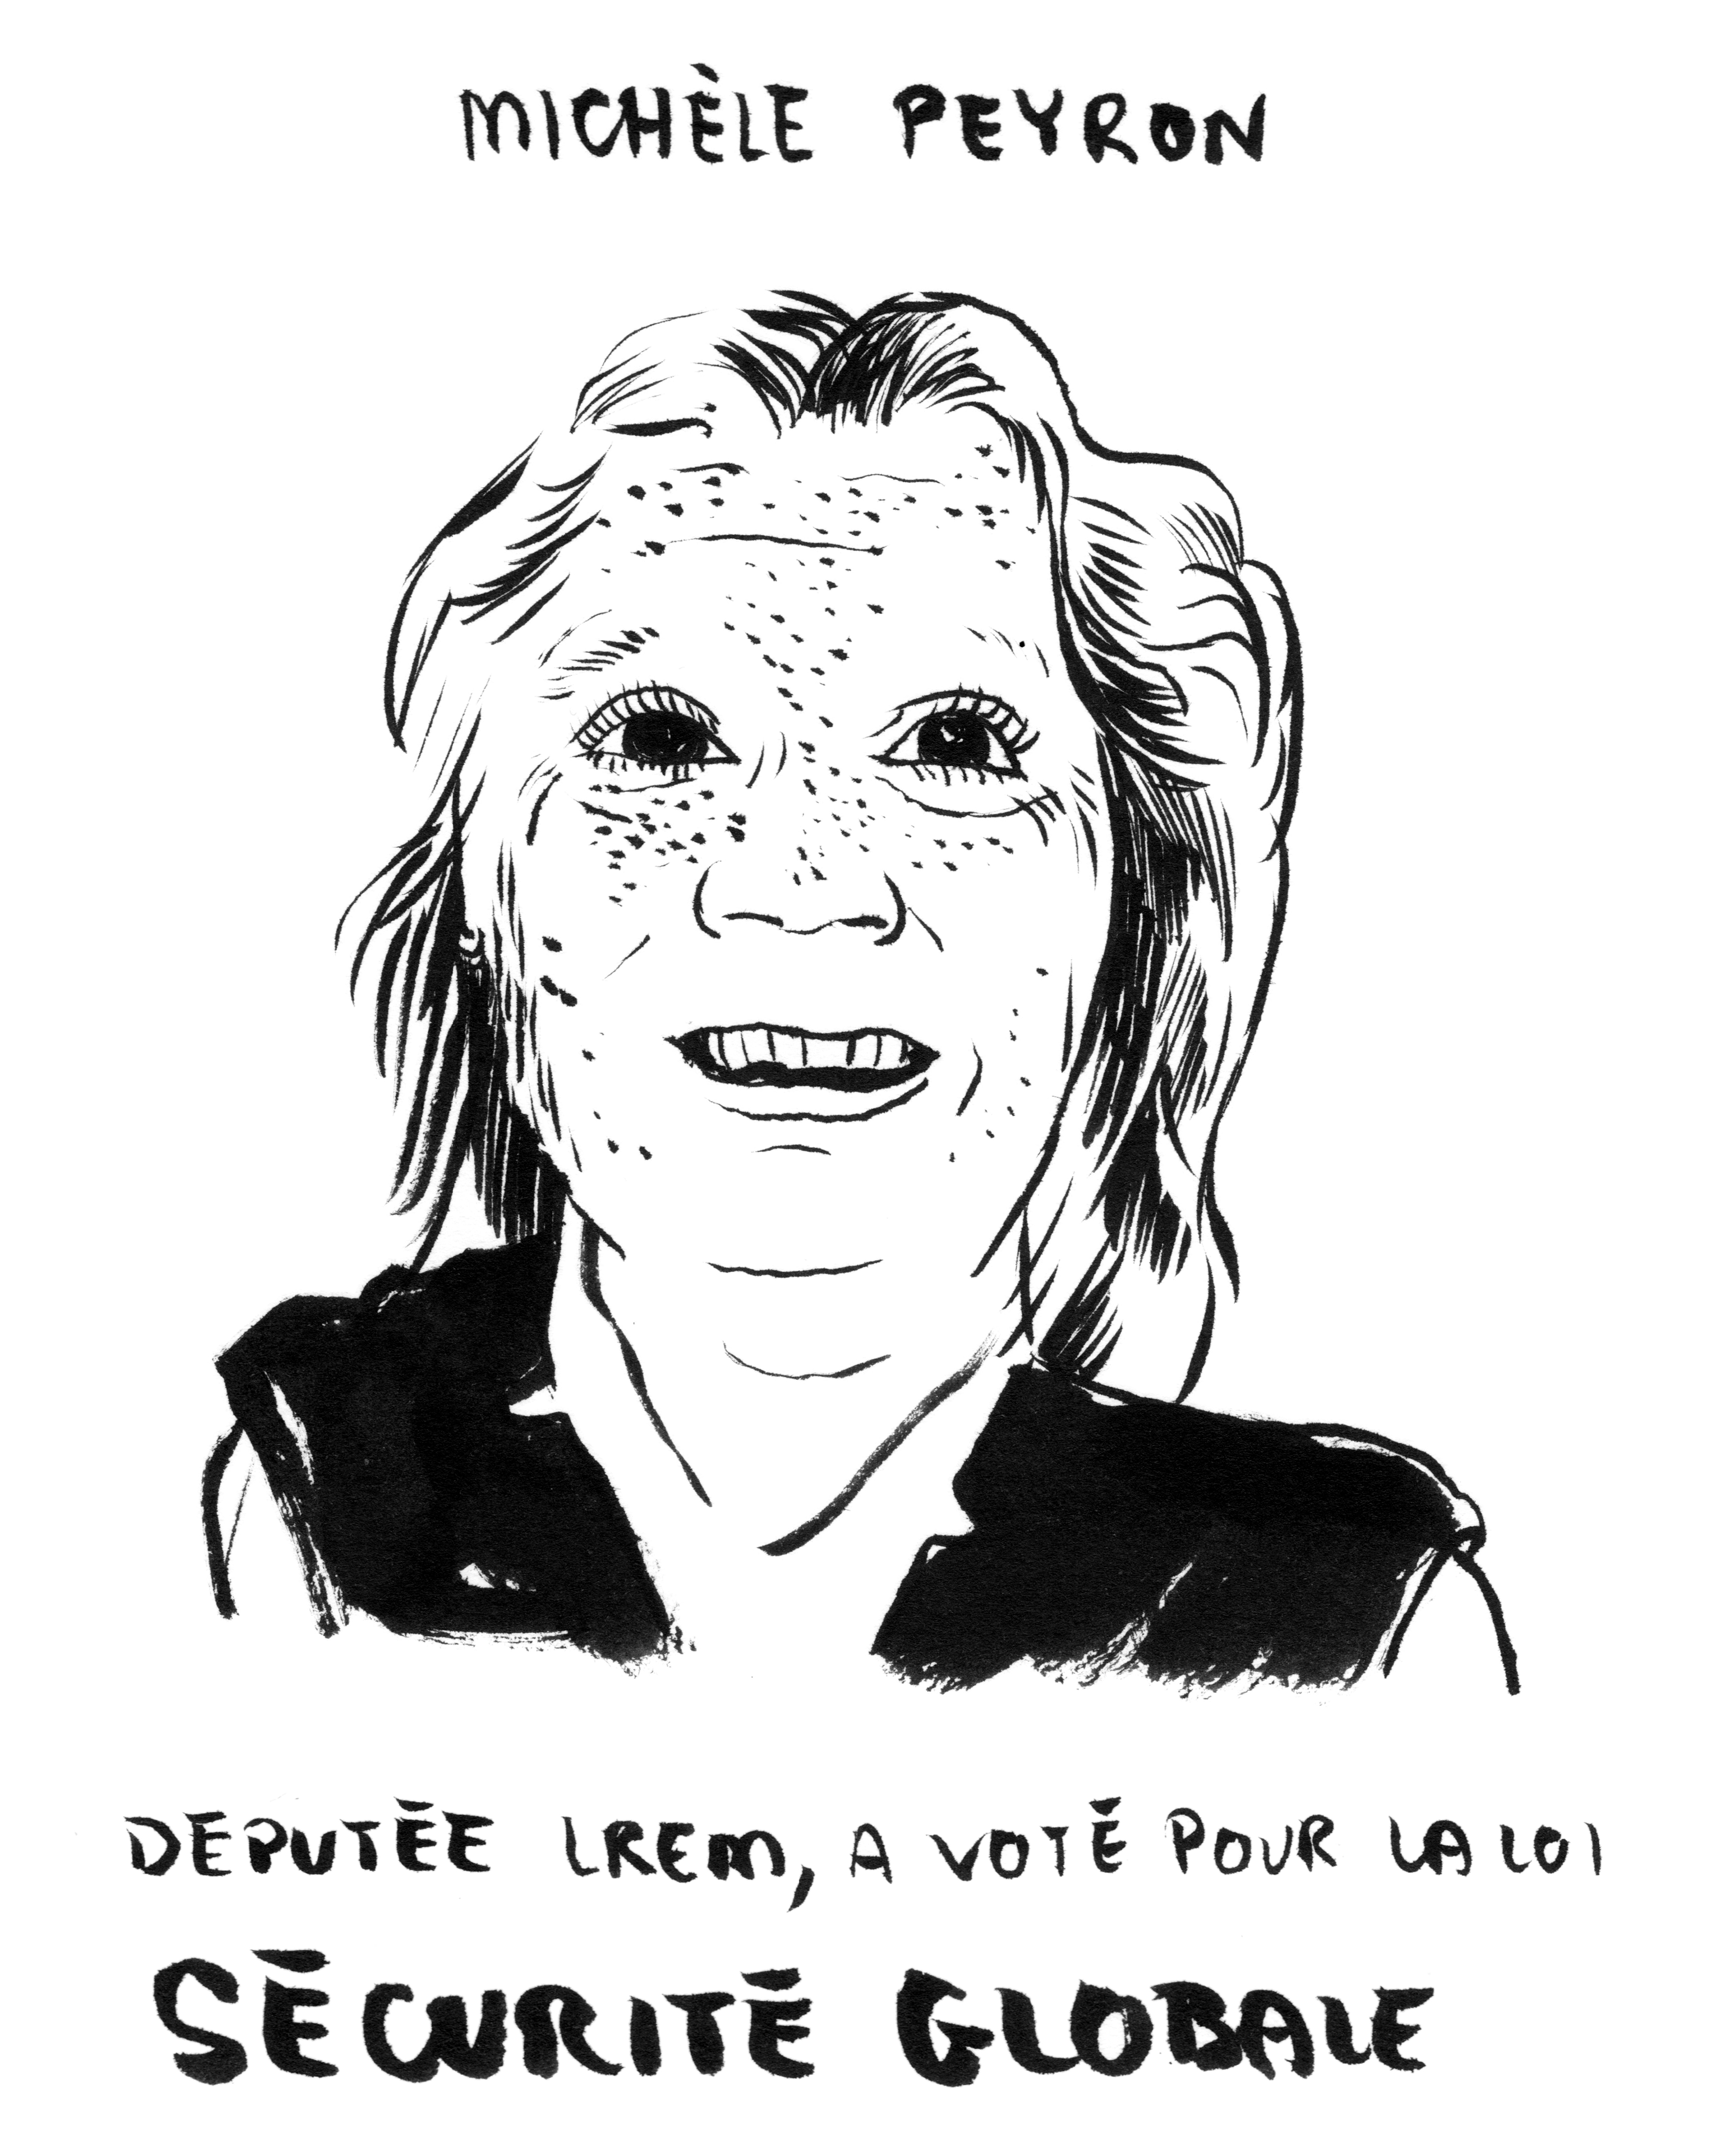 MICHÈLE PEYRON
DEPUTÉE LREM, A VOTÉ POUR LA LOI
SÉCURITÉ GLOBALE